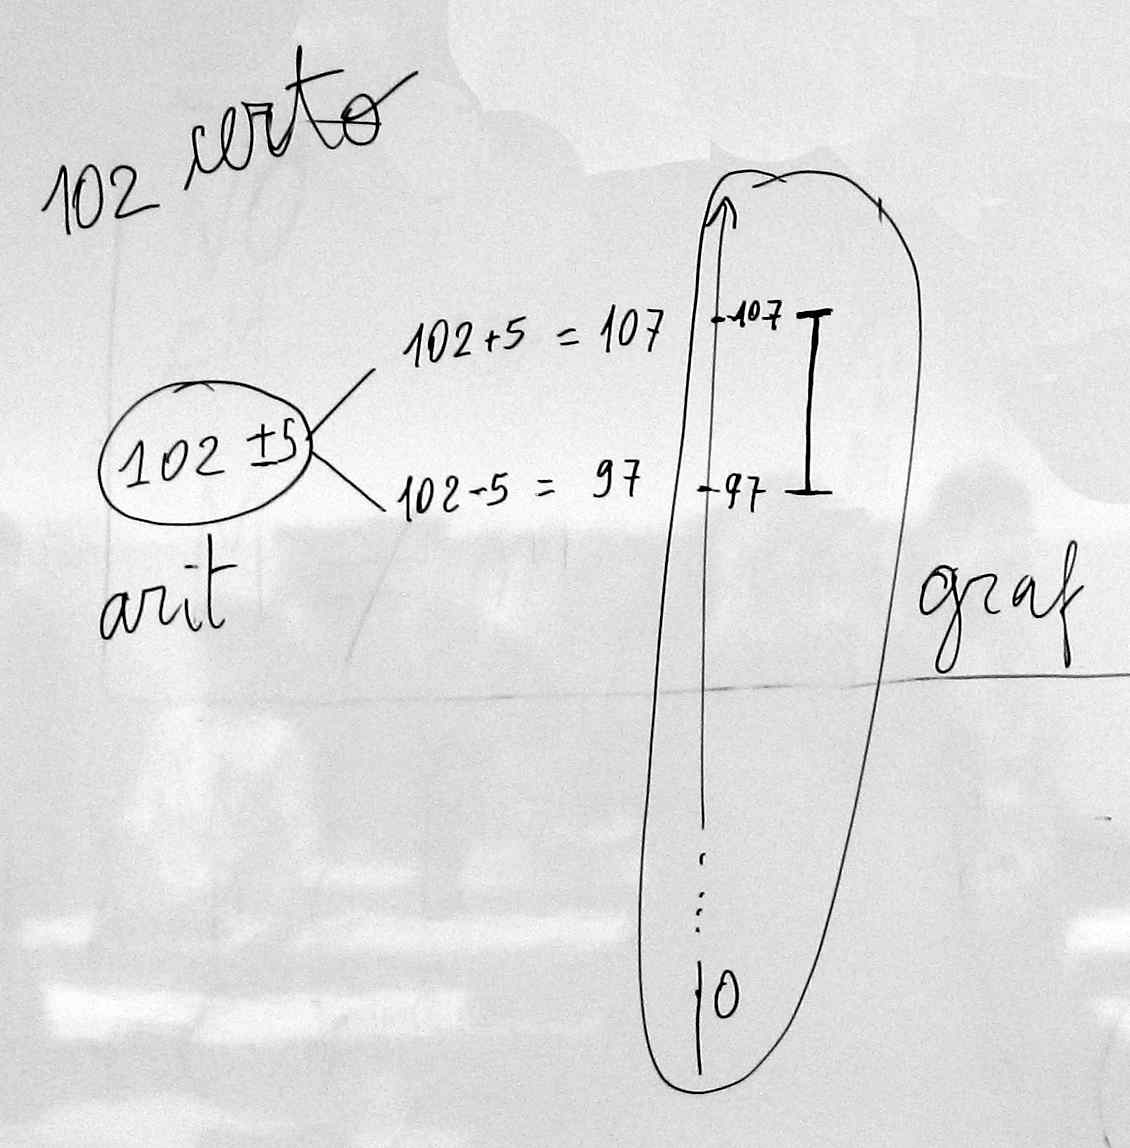 102 certo
102+5 = 107
107
102 ±5
102-5 = 97
97
arit
graf
0